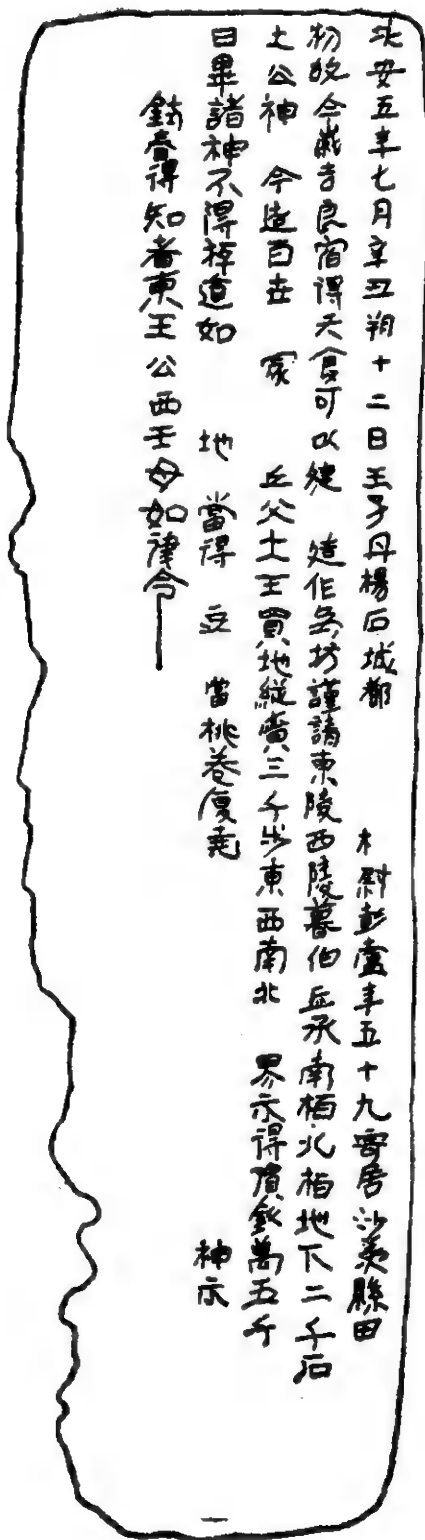 永安五年七月辛丑朔十二日壬子丹楊石城都 木尉彭盧年五十九寄居沙羡縣田
物故今歲吉良宿得天倉可以建 造作冢坊謹請東陵西陵暮伯丘承南栢北栢地下二千石
土公神 今造百世 冢 丘父土王買地縱廣三千步東西南北 界示得價錢萬五千
日畢諸神不得抵道如 地 當得 豆 當桃卷復堯 神示
鋳責得知者東王公西王母如律令